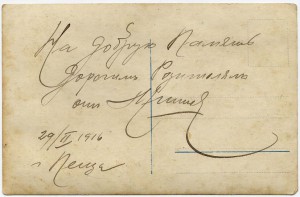 На добрую память
Дорогимъ Родителямъ
отъ
29/II 1916
г. Пенза